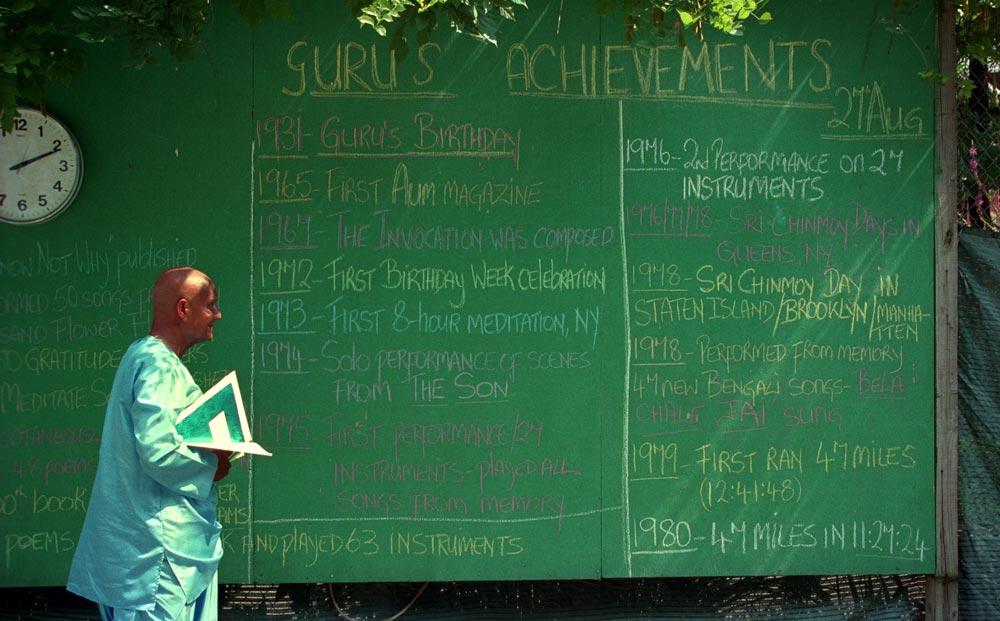 GURU'S ACHIEVEMENTS
27 Aug
12
11
1
2
3
4
5
6
7
NOW NOT WHY published
ORMED 50 SONGS
SAND FLOWER
TO GRATITUDE
MEDITATE
48 poems
book
poems
1931 - GURU'S BIRTHDAY
1965 - FIRST AUM MAGAZINE
1967 - THE INVOCATION WAS COMPOSED
1972 - FIRST BIRTHDAY WEEK CELEBRATION
1973 - FIRST 8-HOUR MEDITATION, NY
1974 - SOLO PERFORMANCE OF SCENES
FROM THE SON
1975 - FIRST PERFORMANCE/27
INSTRUMENTS - played ALL
SONGS FROM MEMORY
AND PLAYED 63 INSTRUMENTS
1976 - 2nd PERFORMANCE ON 27
INSTRUMENTS
1976/77/78 - SRI CHINMOY DAYS IN
QUEENS, NY
1978 - SRI CHINMOY DAY IN
STATEN ISLAND/BROOKLYN/MANHA-
TTEN
1978 - PERFORMED FROM MEMORY
47 NEW BENGALI SONGS - BELA
CHALE JAI SUNG
1979 - FIRST RAN 47 MILES
(12:41:48)
1980 - 47 MILES IN 11:27:24